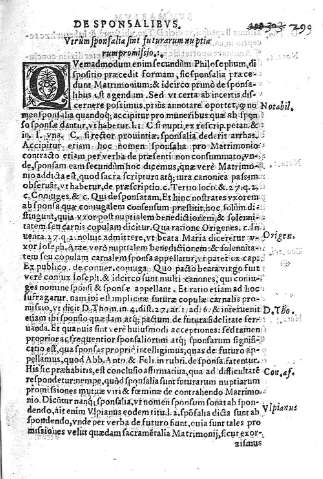 DE SPONSALIBVS.
299
Vtrum sponsalia sint futurarum nuptia
rum promissio.
QVemadmodum enim secundũm Philosophum, di
spositio præcedit formam, sic sponsalia præce
dunt Matrimonium: & idcirco primò de sponsa
libus est agendum. Sed vt certa ab incertis dis-
cernere possimus, prius annotare oportet, quod
Notabil.
nomen sponsalia quandoq; accipitur pro muneribus quæ ab spon
so sponsæ dantur, vt habetur l. C. si nupti. ex rescrip. petan. &
in l. vnic. C. si rector prouintiæ, sponsalia dedisti arrhas.
Accipitur etiam hoc nomen sponsalia pro Matrimonio
contracto etiam per verba de præsenti non consummato, vn-
de, sponsam eam secundum hoc dicimus, quæ verè Matrimo
nio addicta est, quod sacra scriptura atq; iura canonica passim
obseruãt, vt habetur, de præscriptio. c. Tertio loco. & 27. q. 2.
c. Coniuges, & c. Qui desponsatam. Et hinc nostrates vxorem
ab sponsa quæ coniugalem consensum præstitit, hoc solùm di-
stingunt, quia vxor post nuptialem benedictionem, & solemni-
tatem seu carnis copulam dicitur. Qua ratione Origenes. c. In-
Origen.
uenta. 27. q. 2. noluit admittere, vt beata Maria diceretur v-
xor Ioseph, ante verò nuptialem benedictionem & solennita-
tem seu copulam carnalem sponsa appellatur, vt patet ex cap.
Ex publico. de conuer. coniuga. Quo pacto beata virgo fuit
verè coniux Ioseph, & idcirco sunt multi canones, qui coniu-
ges nomine sponsi & sponsæ appellant. Et ratio etiam ad hoc
suffragatur. nam ibi est implicitè futuræ copulæ carnalis pro-
missio, vt dicit D. Thom. 4. dist. 27. ar. 1. ad 6. & interuenit
D. Tho.
etiam ibi sponsio quædam atq; pactum de futura fidelitate ser-
uanda. Et quamuis sint verè huiusmodi acceptiones: sed tamen
proprior ac frequentior sponsaliorum atq; sponsarum signifi-
catio est, qua sponsas propriè intelligimus, quas de futuro ap-
pellamus, quod Abb. Anto. & Feli. in rubri. de sponsa. fatentur.
His sic præhabitis, est conclusio affirmatiua, qua ad difficultatẽ
Con. af.
respondetur nempe, quòd sponsalia sunt futurarum nuptiarum
promissiones mutuæ viri & fœminæ de contrahendo Matrimo
nio. Dicũtur nanq; sponsalia, vt nomen ipsum sonat ab spon-
dendo, ait enim Vlpianus eodem titu. l. 2. spõsalia dicta sunt ab
Vlpianus
spondendo, vnde per verba de futuro sunt, cuia sunt tales pro
missiones velut quædam sacramentalia Matrimonij, sicut exor-
zismus